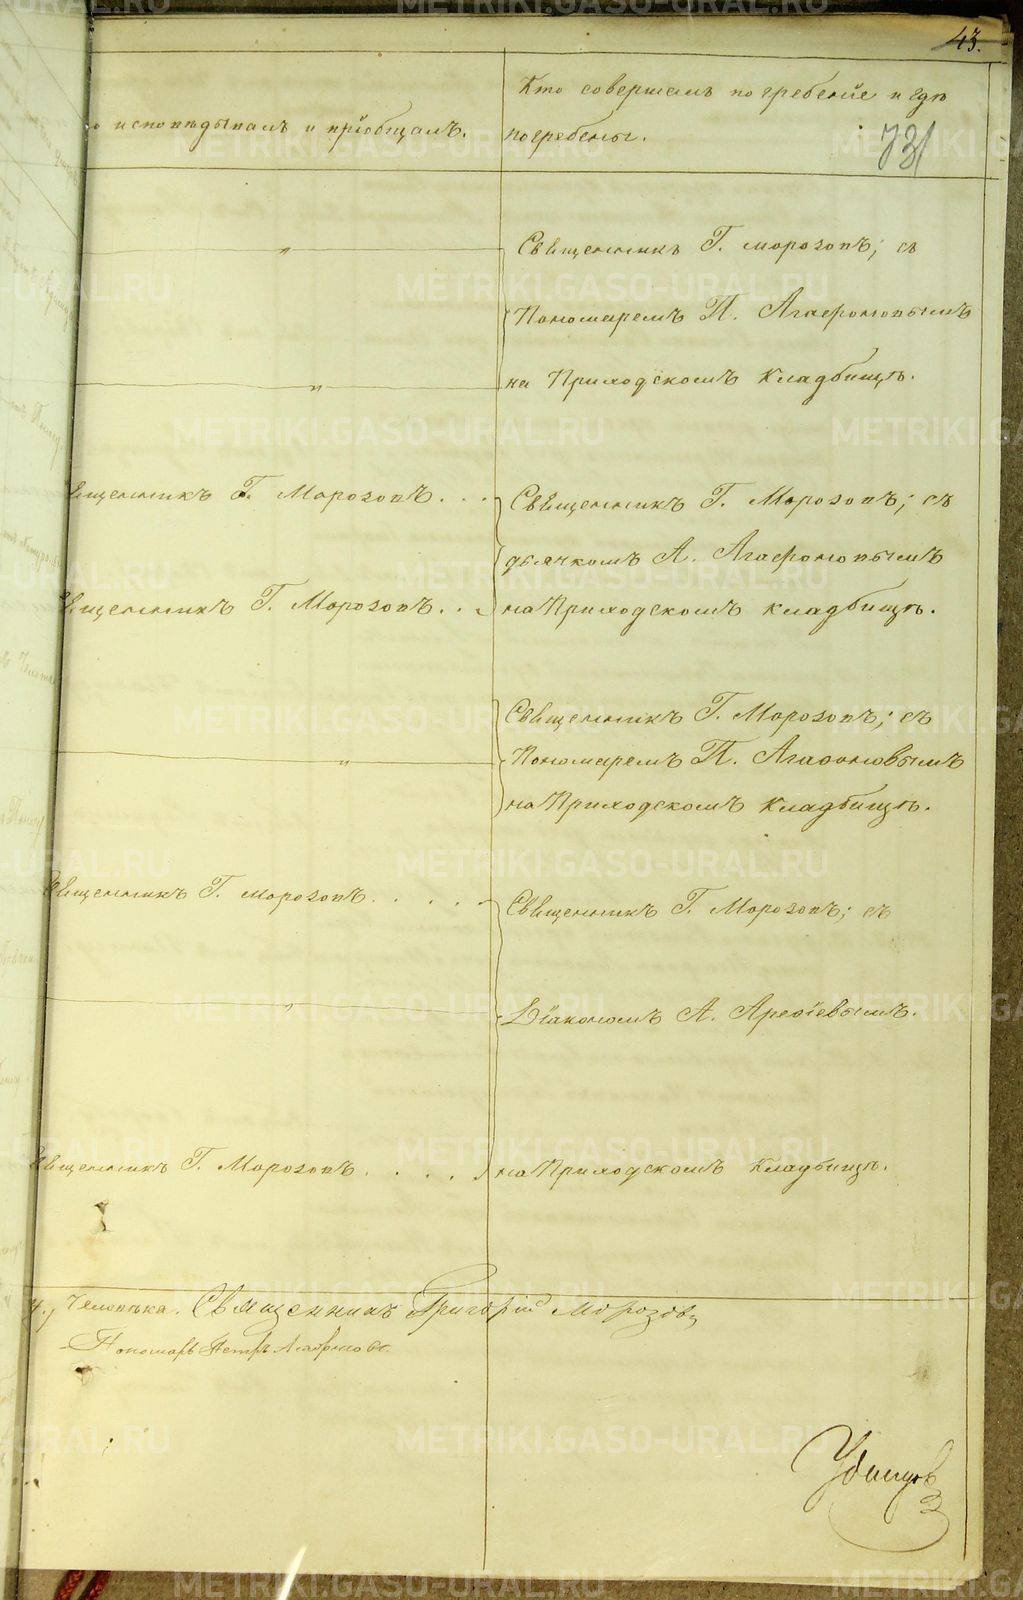 43.
Кто совершалъ погребеніе и гдѣ
погребены.
исповѣдывалъ и пріобщалъ.
731
Священникъ Г. Морозовъ; съ
Пономаремъ П. Агафоновымъ
на Приходскомъ Кладбищѣ.
вященникъ Г. Морозовъ...
Священникъ Г. Морозовъ; съ
дьячкомъ А. Агафоновымъ
вященникъ Г. Морозовъ...
на Приходскомъ кладбищѣ.
Священникъ Г. Морозовъ; съ
Пономаремъ П. Агафоновымъ
на Приходскомъ Кладбищѣ.
Священникъ Г. Морозовъ.....
Священникъ Г. Морозовъ; съ
Діакономъ А. Арефіевымъ.
вященникъ Г. Морозовъ....
на Приходскомъ Кладбищѣ.
Человѣка. Священникъ Григорій Морозовъ
Пономарь Петръ Агафоновъ
METRIKI.GASO-URAL.RU